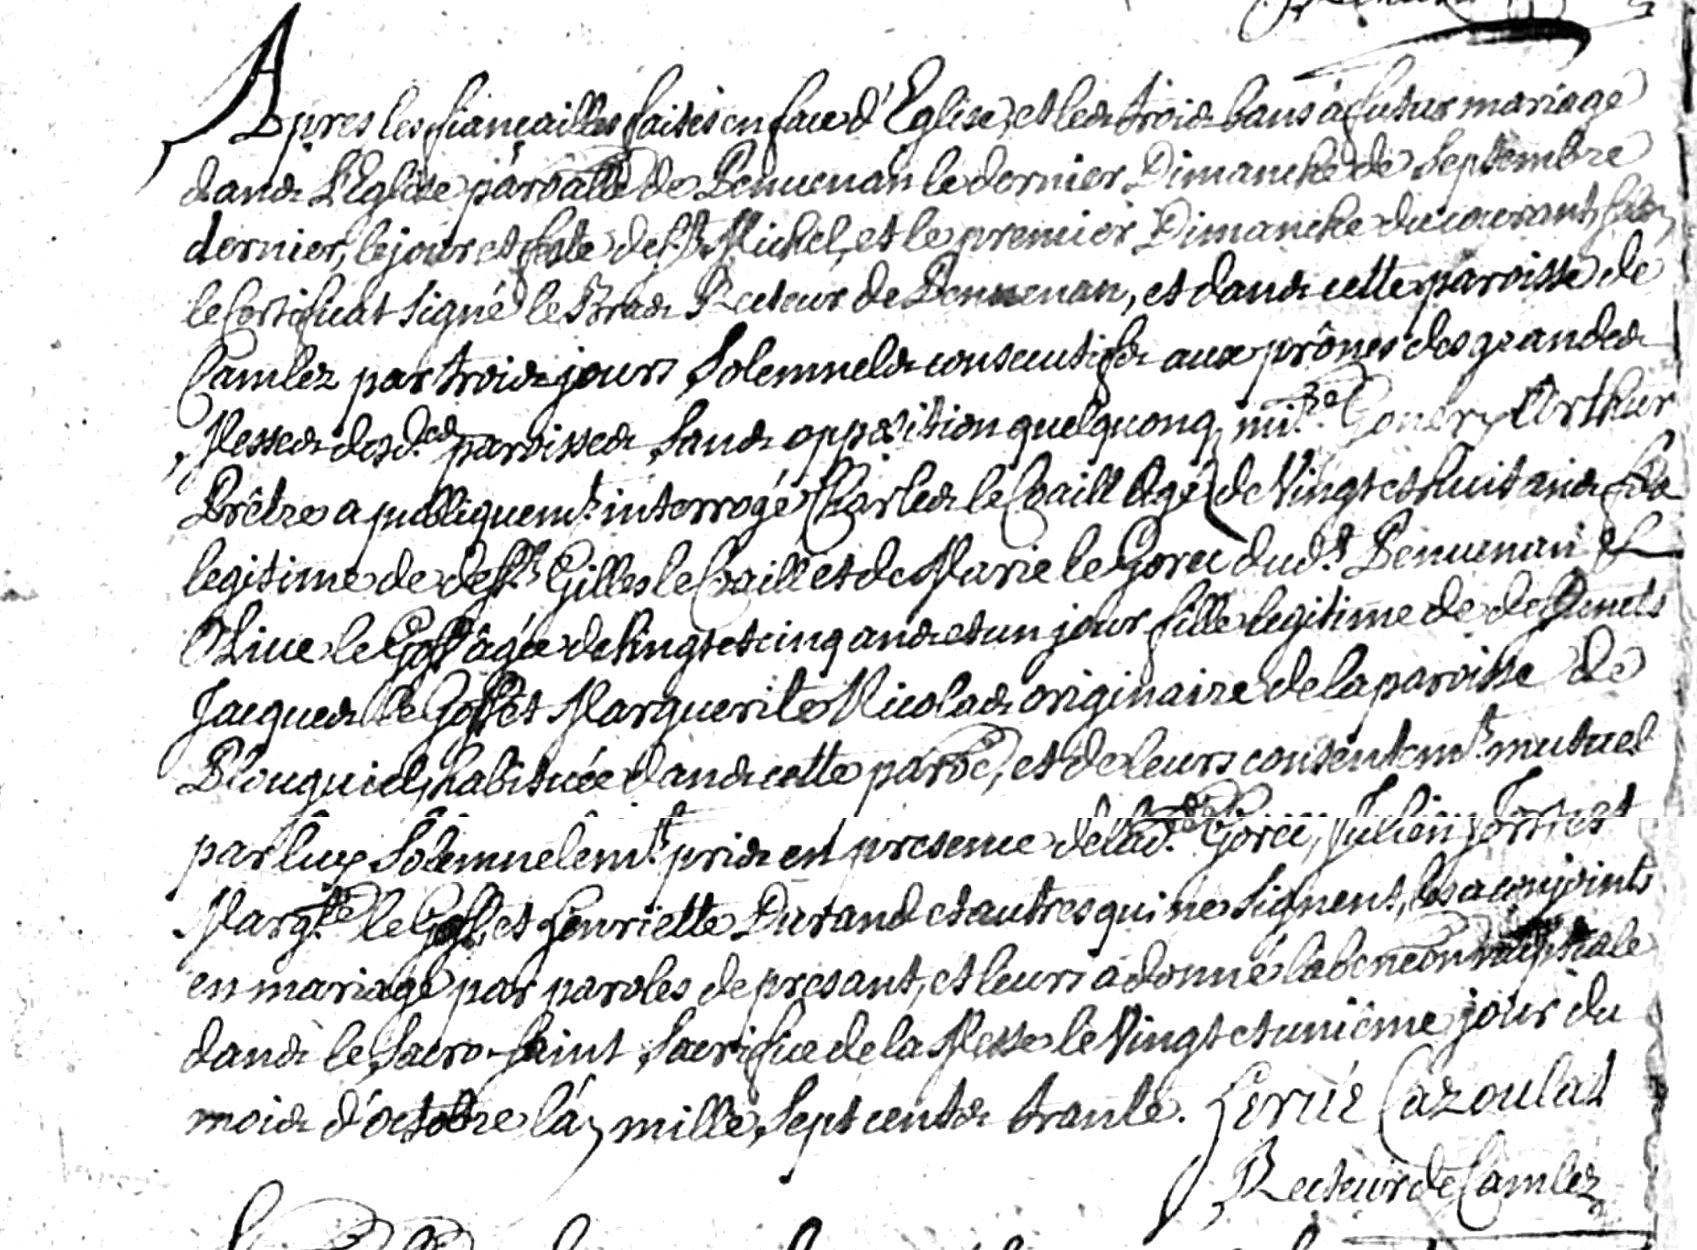 Apres les fiançailles faites en face d'Eglise, et les trois bans à futur mariage
dans L'Eglise paroalle de Penuenan le dernier Dimanche de Septembre
dernier, le jour et feste de St Michel, et le premier Dimanche du courant,
le Certificat signé le Bras Recteur de Penuenan, et dans cette paroisse de
Camlez par trois jours Solemnels consecutifs aux prônes des grandes
Messes desd. paroisses sans opposition quelquonq, Gonery Arthur
Prêtre a publiquemt. interrogé Charles le Craill Agé de Vingt et huit ans fils
legitime de defft Gilles le Craill et de Marie le Gorec dudt. Penuenan et
Olive le Goff âgée de Vingt et cinq ans et un jour fille legitime de deffuncts
Jacques le Goff et Marguerite Nicolas originaire de la paroisse de
Plouguiel, habituée dans cette paroe, et de leurs consentemt. mutuel
par luy Solemnelemt. pris en presence de lade. Gorec, Julien et
Margte. le Goff, et Henriette Durand et autres qui ne signent, les a conjoints
en mariage par paroles de presant, et leurs a donné la beneon nuptiale
dans le Sacro-Saint Sacrifice de la Messe le Vingt et unième jour du
mois d'octobre l'an mille Sept cents trante. Hervé Cazoulat
Recteur de Camlez